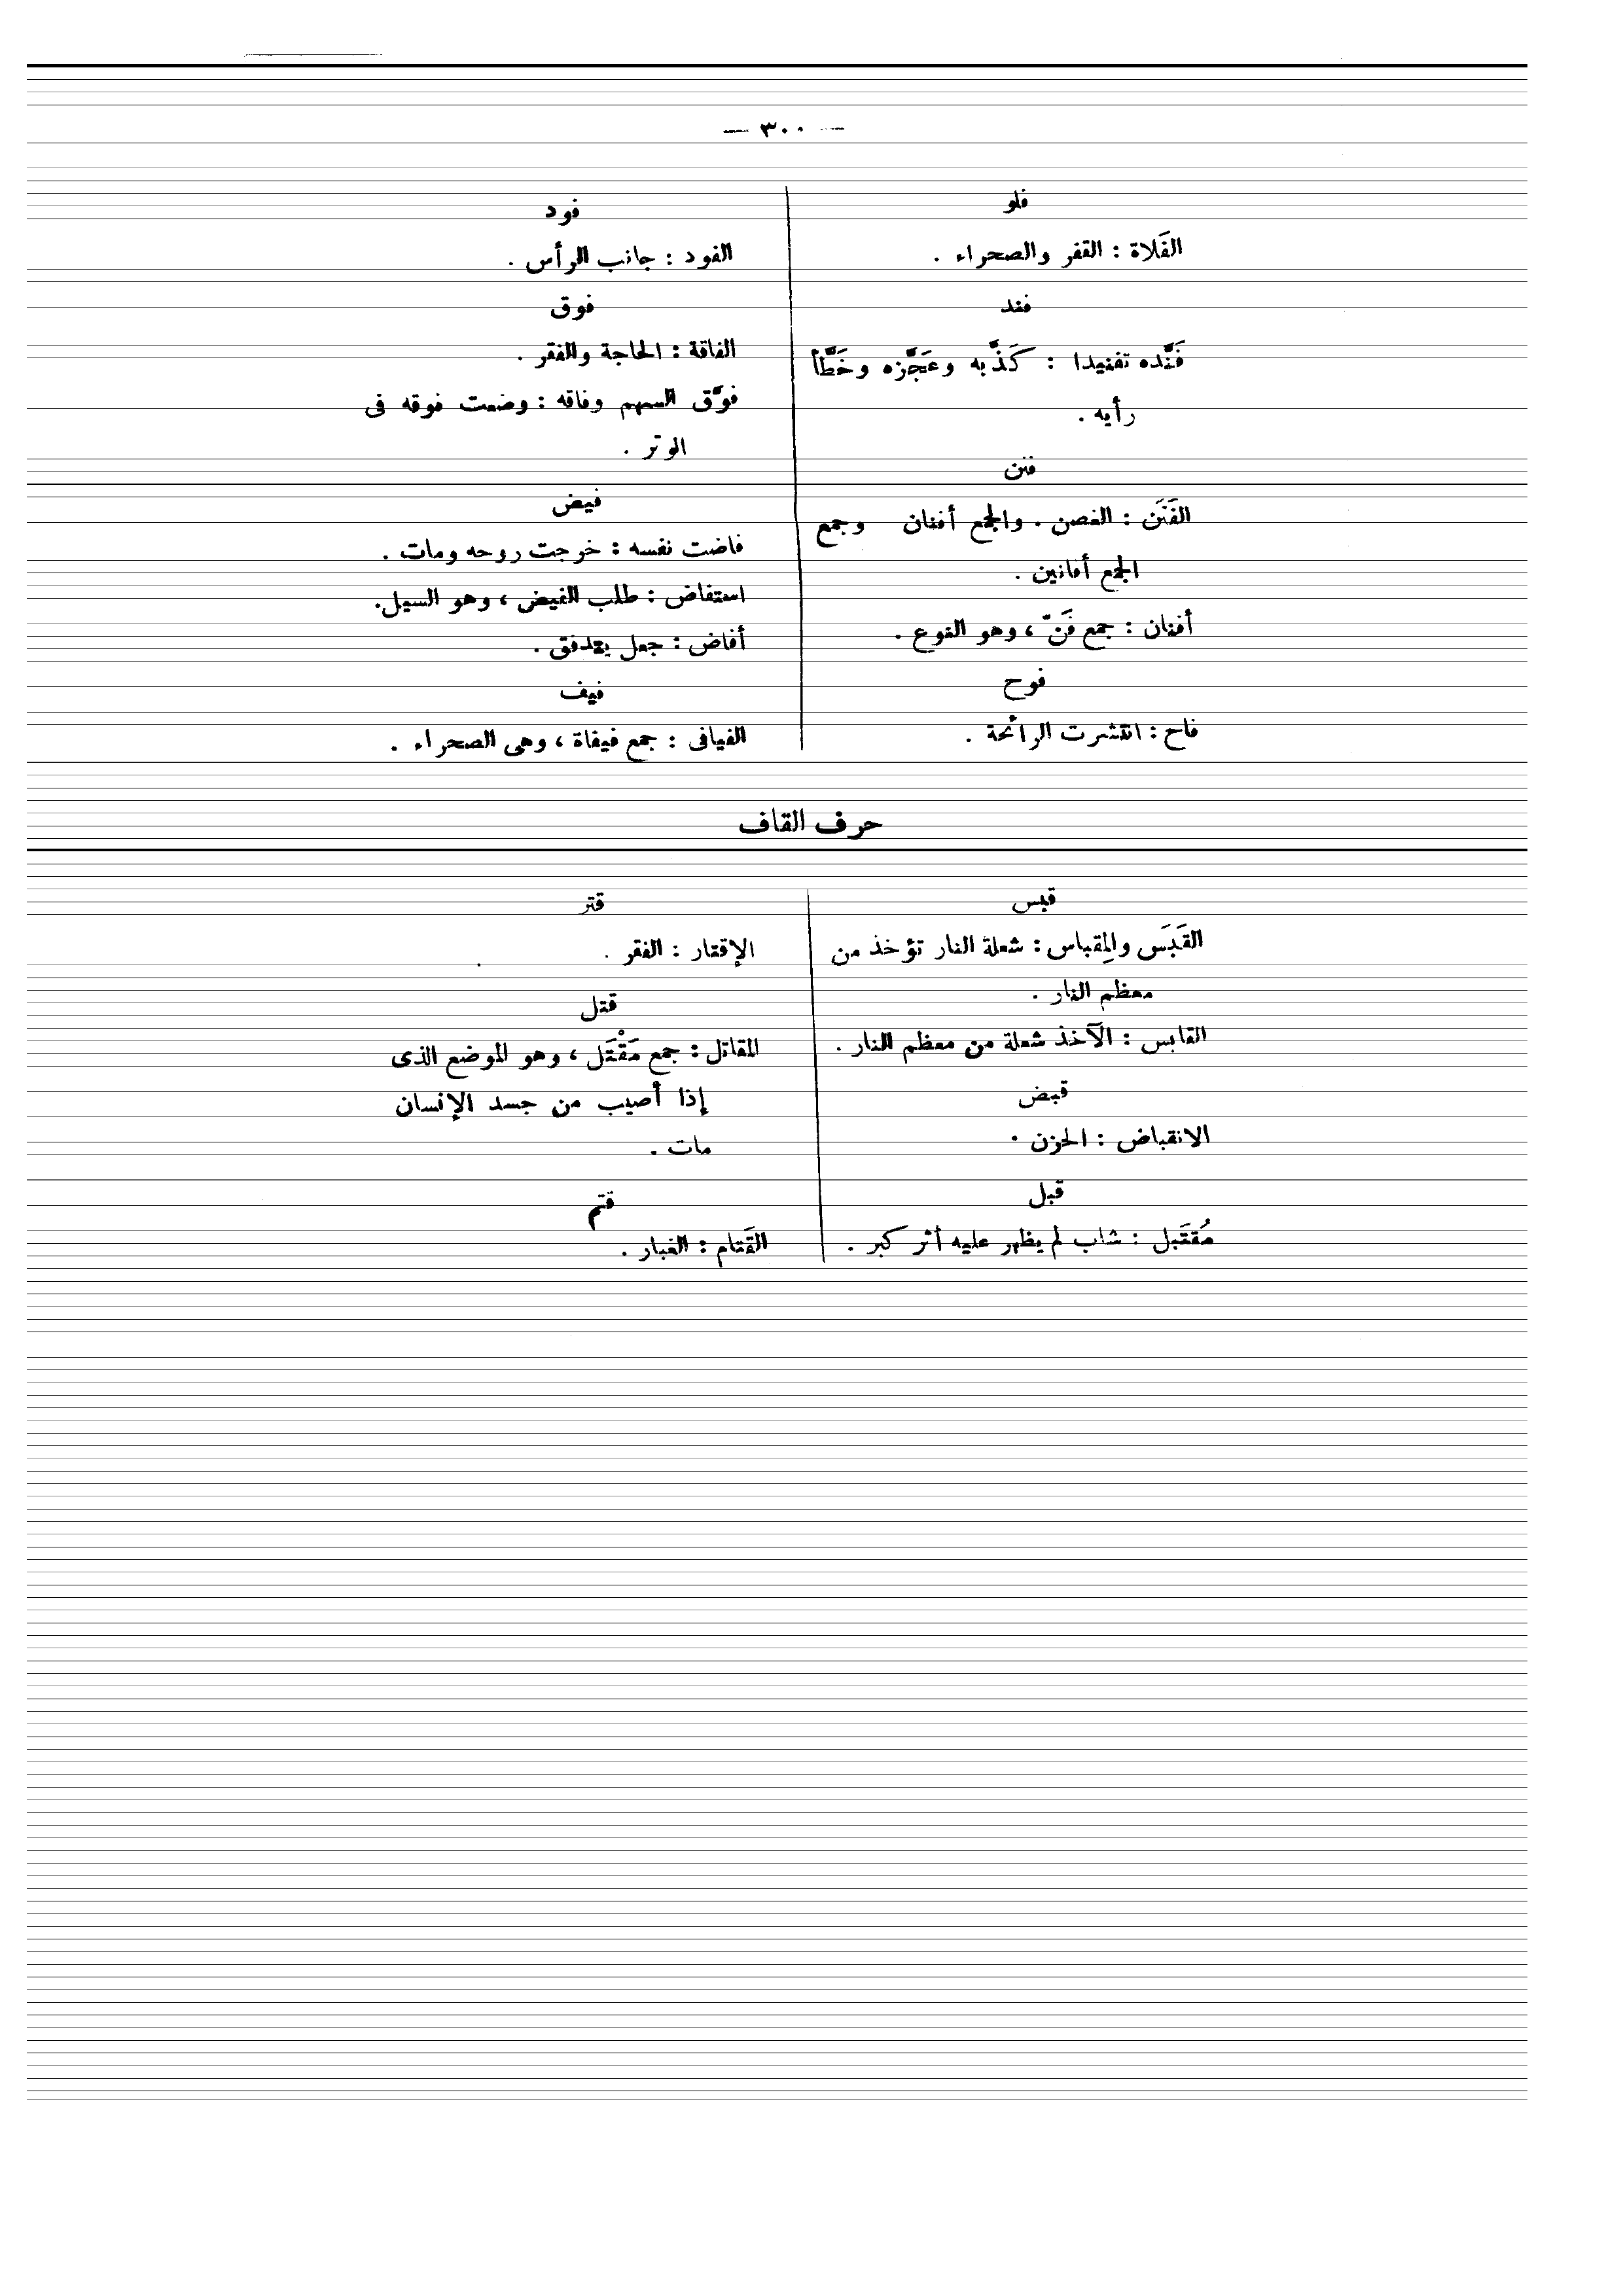 — ٣٠٠ —
فلو
الفَلاة : القفر والصحراء .
فند
فَنَّده تفنيدا : كَذَّبه وعَجَّزه وخَطَّأ
رأيه .
فنن
الفَنَن : الغصن . والجمع أفنان وجمع
الجمع أفانين .
أفنان : جمع فَنّ ، وهو النوع .
فوح
فاح : انتشرت الرائحة .
فود
الفود : جانب الرأس .
فوق
الفاقة : الحاجة والفقر .
فوَّق السهم وفاقه : وضعت فوقه فى
الوتر .
فيض
فاضت نفسه : خرجت روحه ومات .
استفاض : طلب الفيض ، وهو السيل .
أفاض : جعل يتدفق .
فيف
الفيافى : جمع فيفاة ، وهى الصحراء .
حرف القاف
قبس
القَبَس والمِقباس : شعلة النار تؤخذ من
معظم النار .
القابس : الآخذ شعلة من معظم النار .
قبض
الانقباض : الحزن .
قبل
مُقتَبل : شاب لم يظهر عليه أثر كبر .
قتر
الإقتار : الفقر .
قتل
المقاتل : جمع مَقْتَل ، وهو الموضع الذى
إذا أصيب من جسد الإنسان
مات .
قتم
القَتام : الغبار .